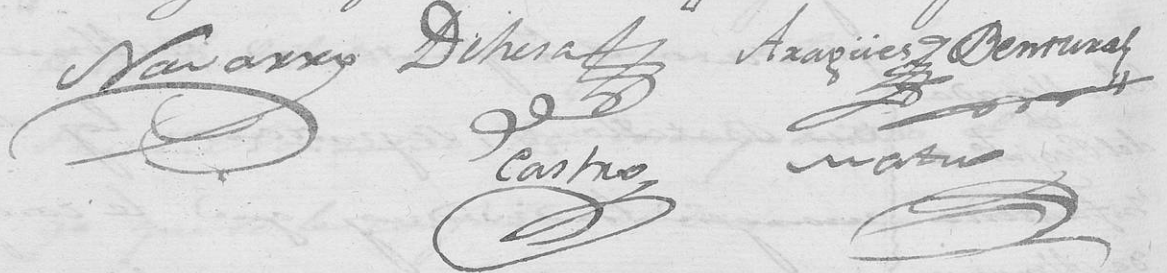 Navarro Dehesa Aragües Bentura
Castro Matu